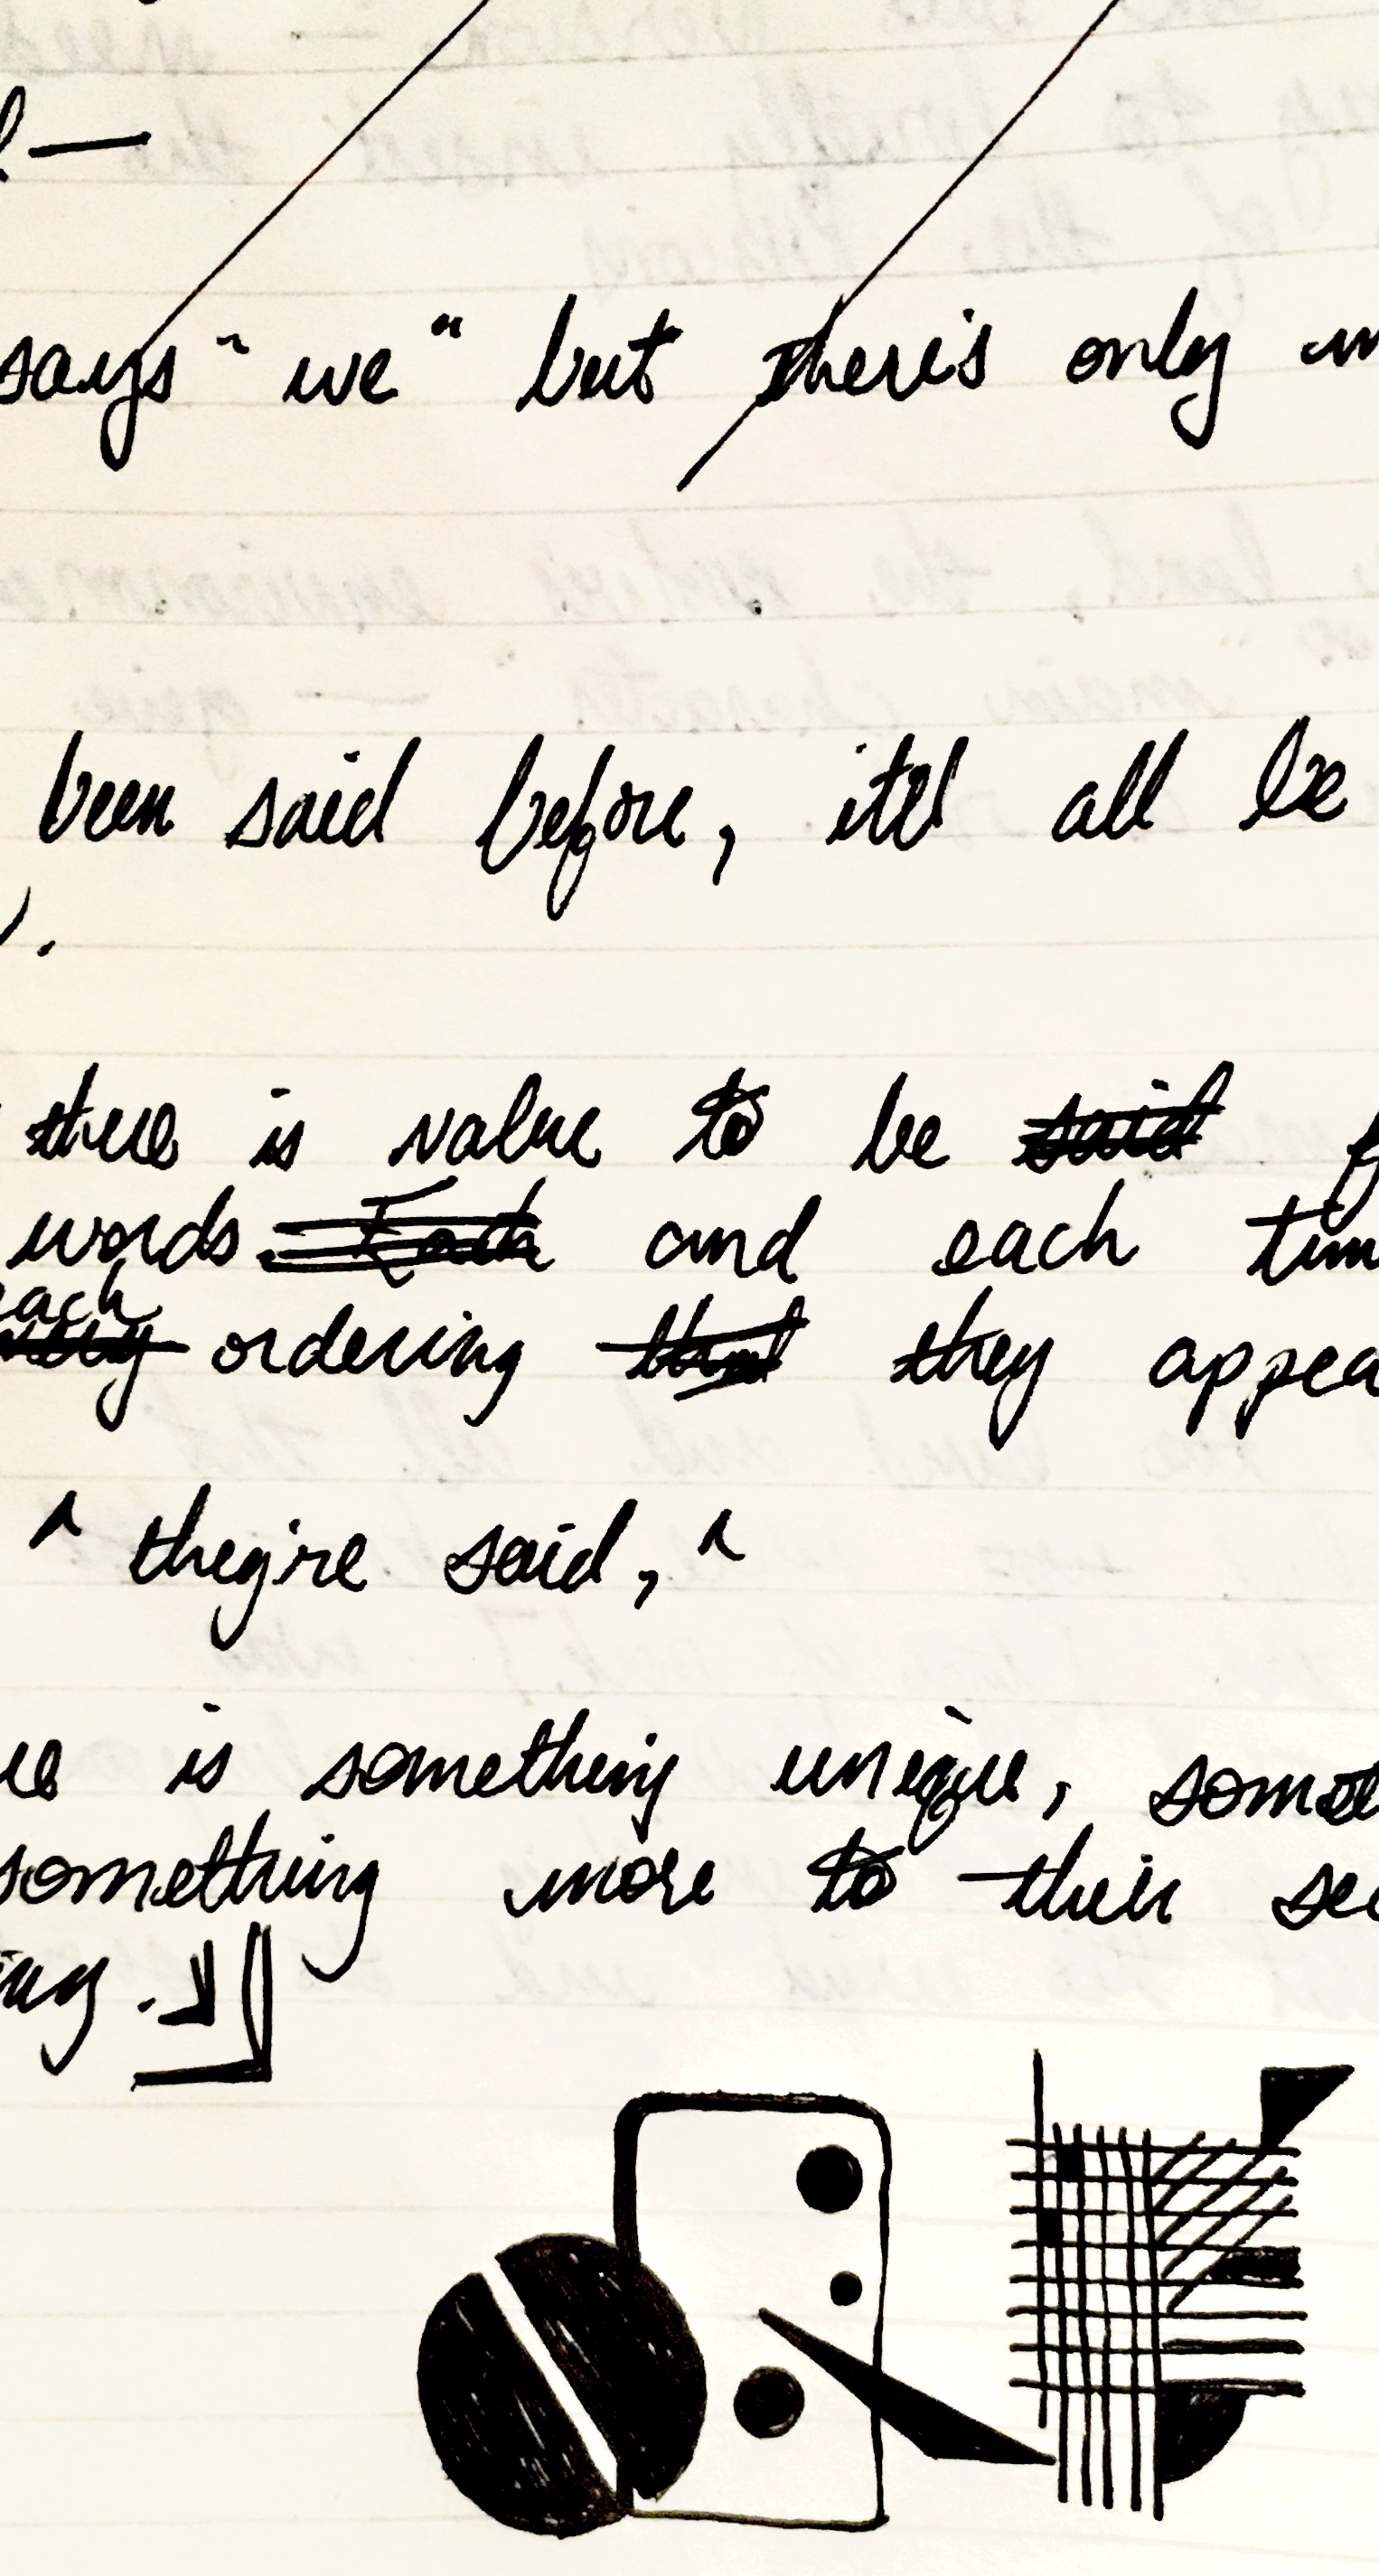 says "we" but there's only
been said before, it'll all be
there is value to be said
words. Each and each
each
ordering that they appea
^ they're said, ^
is something unique,
something more to their